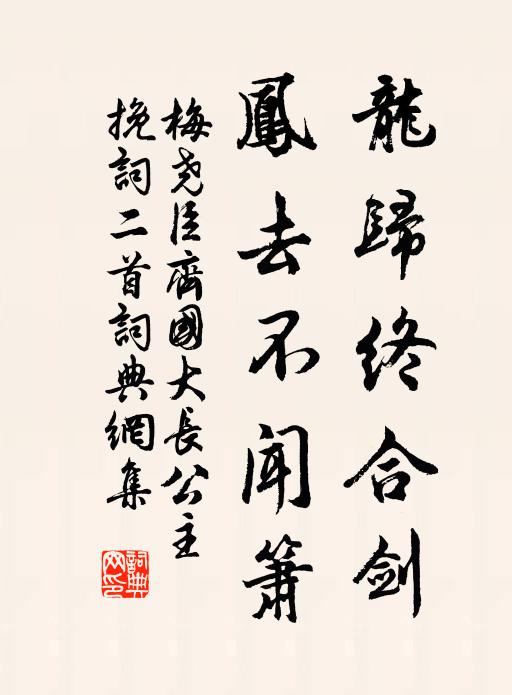 龍歸終合劍
鳳去不聞簫
梅堯臣齊國大長公主
挽詞二首詞典網集
詞典
网印